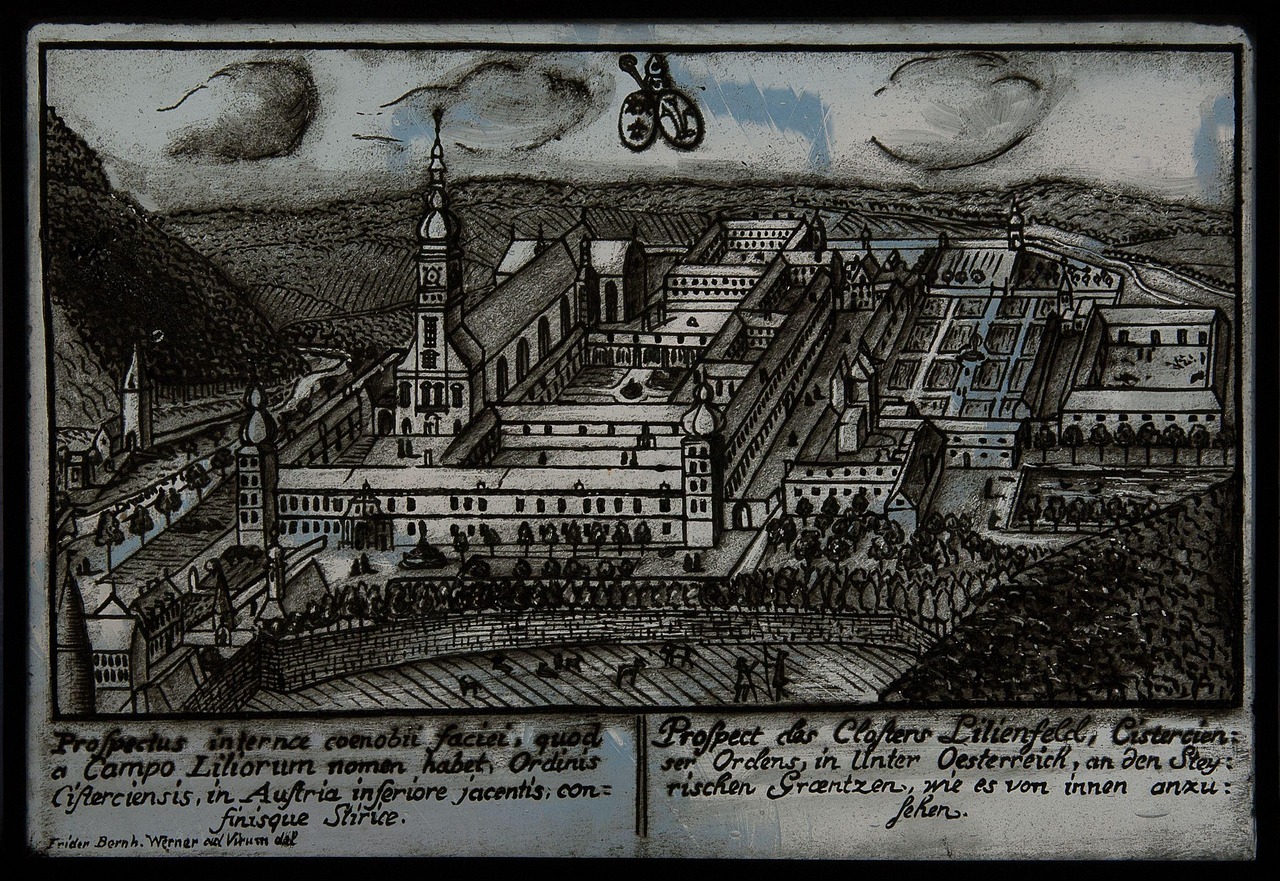 Proſpectus internæ coenobii faciei, quod
a Campo Liliorum nomen habet, Ordinis
Ciſterciensis, in Auſtria inferiore jacentis; con=
finisque Stiriæ.
Frider Bernh. Werner ad Vivum del
Proſpect des Cloſters Lilienfeld, Cistercien:
ser Ordens, in Unter Oesterreich, an den Stey:
rischen Græntzen, wie es von innen anzu:
ſehen.